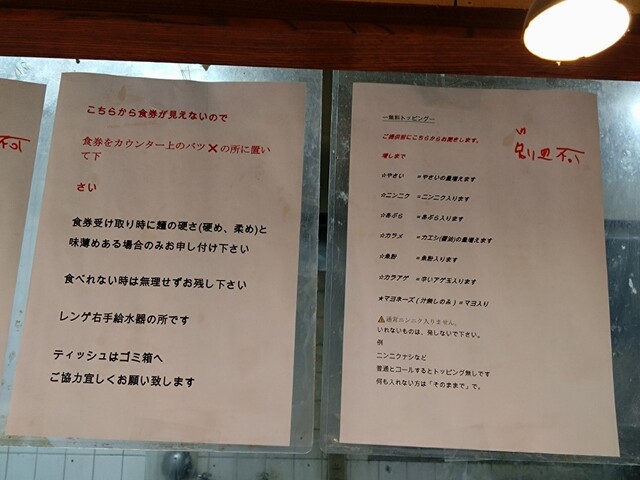 不可
こちらから食券が見えないので
食券をカウンター上のバツ❌の所に置いて下
さい
食券受け取り時に麺の硬さ(硬め、柔め)と
味薄めある場合のみお申し付け下さい
食べれない時は無理せずお残し下さい
レンゲ右手給水器の所です
ティッシュはゴミ箱へ
ご協力宜しくお願い致します
ー無料トッピングー
ご提供前にこちらからお聞きします。
増しまで
☆やさい =やさいの量増えます
☆ニンニク =ニンニク入ります
☆あぶら =あぶら入ります
☆カラメ =カエシ(醤油)の量増えます
☆魚粉 =魚粉入ります
☆カラアゲ =辛いアゲ玉入ります
★マヨネーズ(汁無しのみ)=マヨ入り
⚠通常ニンニク入りません。
いれないものは、発しないで下さい。
例
ニンニクナシなど
普通とコールするとトッピング無しです
何も入れない方は「そのままで」で。
別皿不可